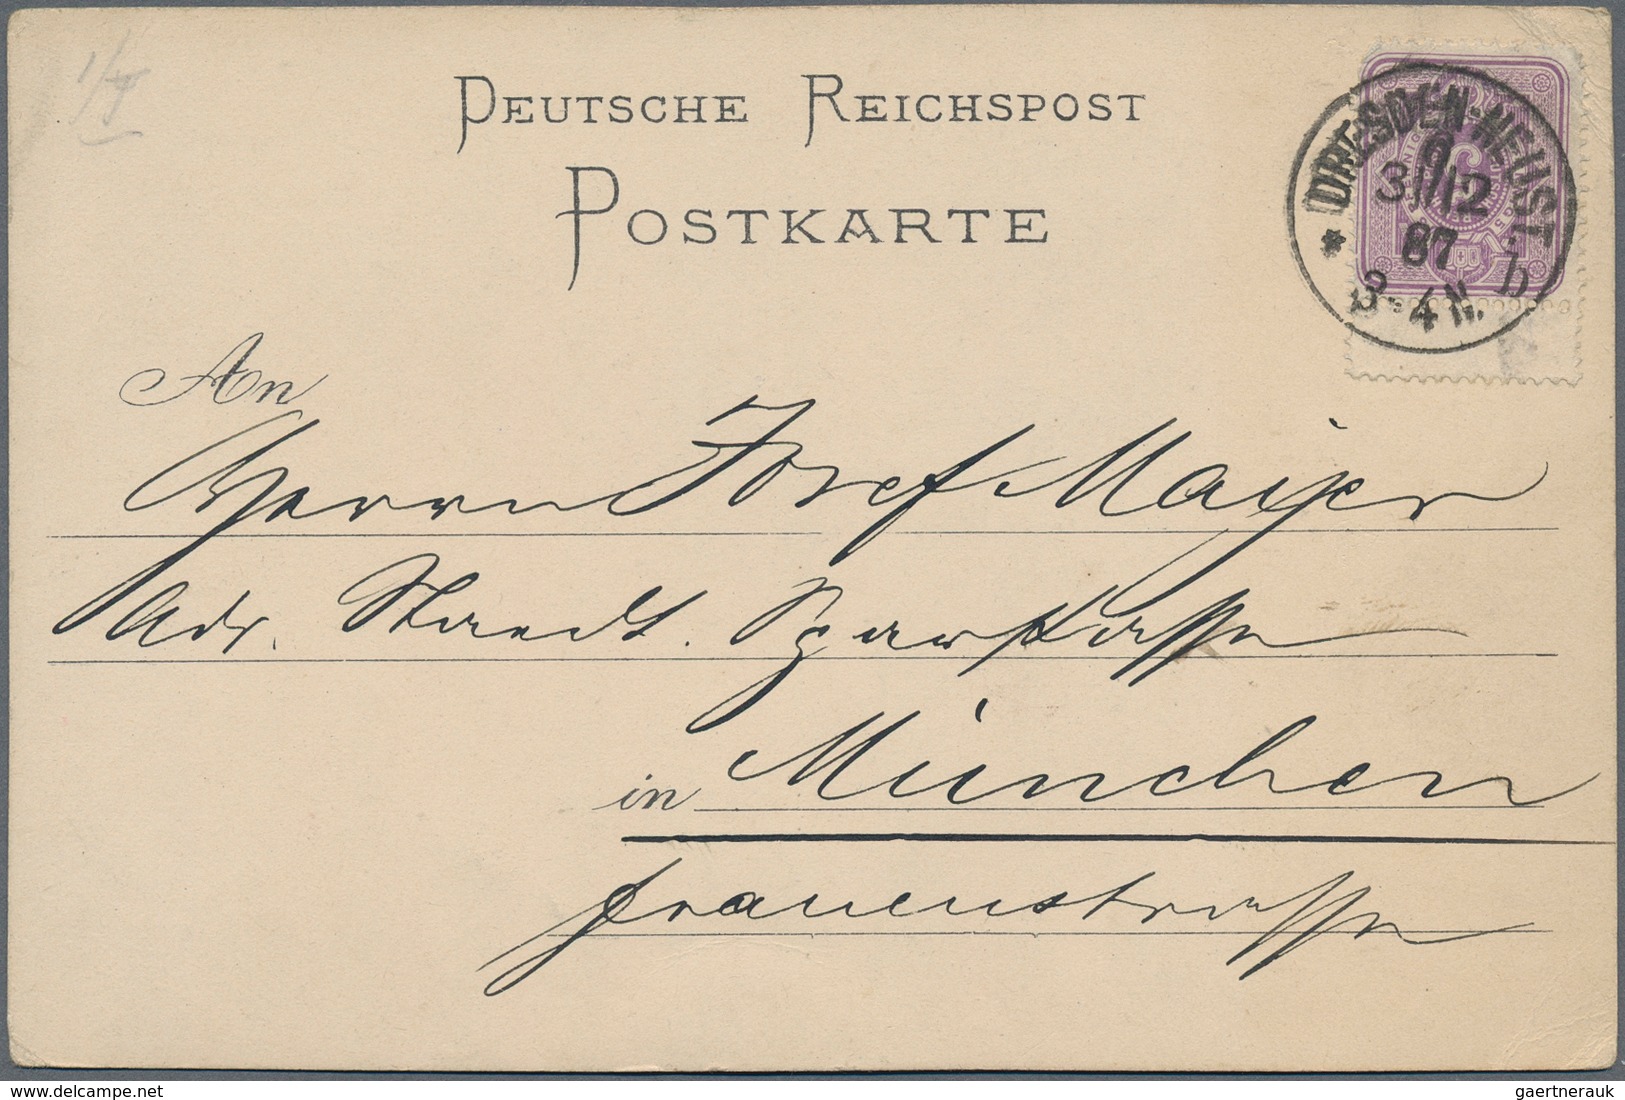 1/4
DEUTSCHE REICHSPOST
POSTKARTE
DRESDEN-NEUST.
9
3/12
87
3-4 N.
* b
An
Herrn Josef Maijer
Adr. Staedt. Sparkasse
in München
Frauenstrasse
delcampe.net
gaertnerauk